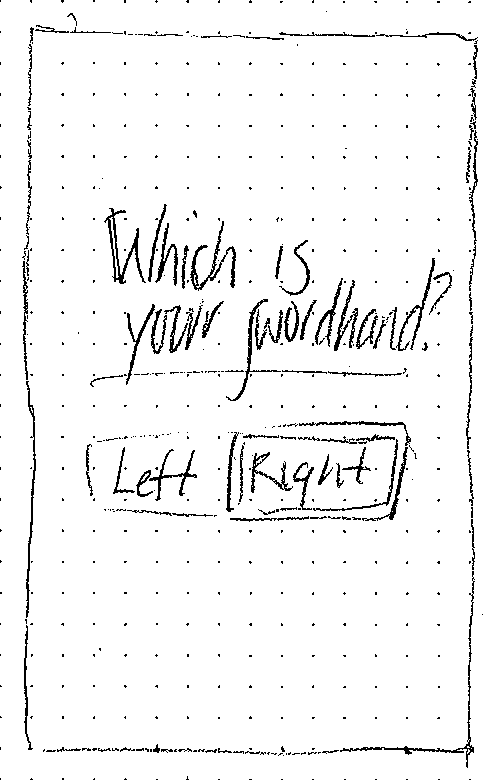 Which is
your swordhand?
Left Right